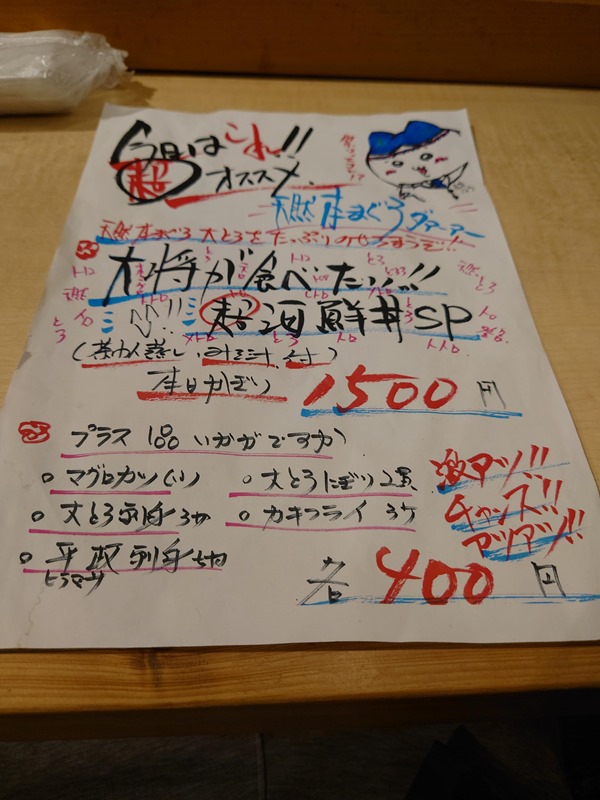 今日はこれ!!
超オススメ
天然本まぐろ
天然本まぐろ大とろをたっぷりのせ
大将が食べたい!!!
超海鮮丼SP
(茶わん蒸し、みそ汁付)
本日かぎり 1500円
プラス1品いかがですか
マグロカツ(1) 大とろにぎり2貫
大とろ刺身3切 カキフライ3ケ
平政刺身5切
ヒラマサ
激アツ!!
チャンス!!
アツアツ!!
各400円